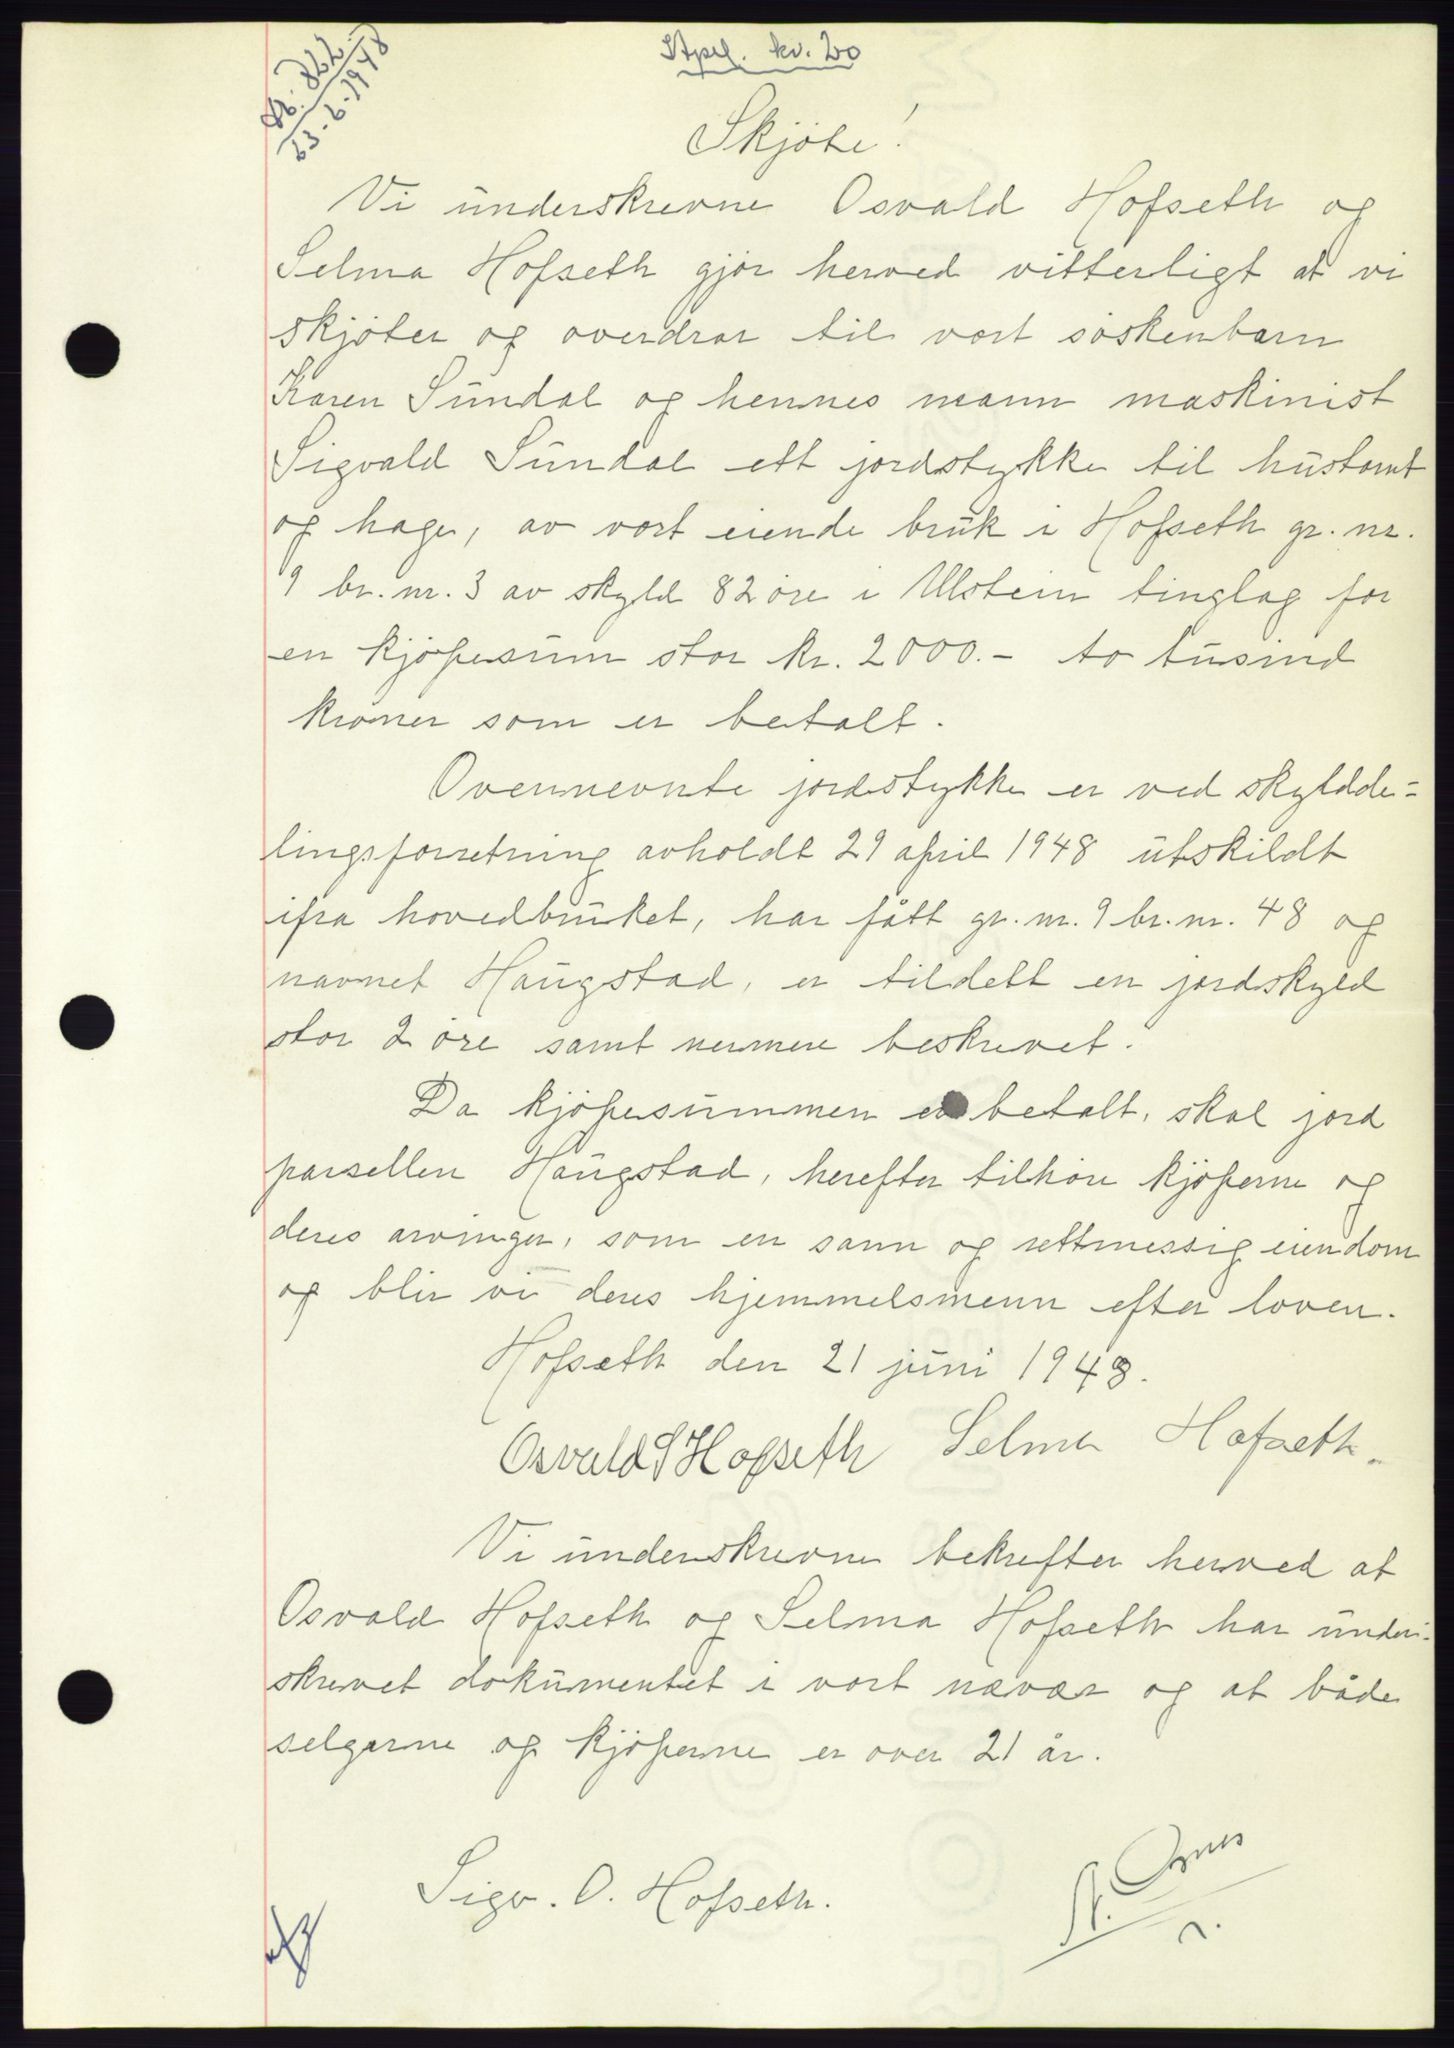 822
23-6-1948
Stpl. kr. 20
Skjöte!
Vi underskrevne Osvald Hofseth og
Selma Hofseth gjör herved vitterligt at vi
skjöter og overdrar til vort söskenbarn
Karen Sundal og hennes mann maskinist
Sigvald Sundal ett jordstykke til hustomt
og hage, av vort eiende bruk i Hofseth gr. nr.
9 br. nr. 3 av skyld 82 öre i Ulstein tinglag for
en kjöpesum stor kr. 2000.- to tusind
kroner som er betalt.
Ovennevnte jordstykke er ved skyldde-
lingsforretning avholdt 29 april 1948 utskildt
ifra hovedbruket, har fått gr. nr. 9 br. nr. 48 og
navnet Haugstad, er tildelt en jordskyld
stor 2 öre samt nermere beskrevet.
Da kjöpesummen er betalt, skal jord
parsellen Haugstad, herefter tilhöre kjöperne og
deres arvinger, som en sann og rettmessig eiendom
og blir vi deres hjemmelsmenn efter loven.
Hofseth den 21 juni 1948.
Osvald S Hofseth Selma Hofseth.
Vi underskrevne bekrefter herved at
Osvald Hofseth og Selma Hofseth har under-
skrevet dokumentet i vort nævær og at både
selgerne og kjöperne er over 21 år.
Sigv. O. Hofseth.